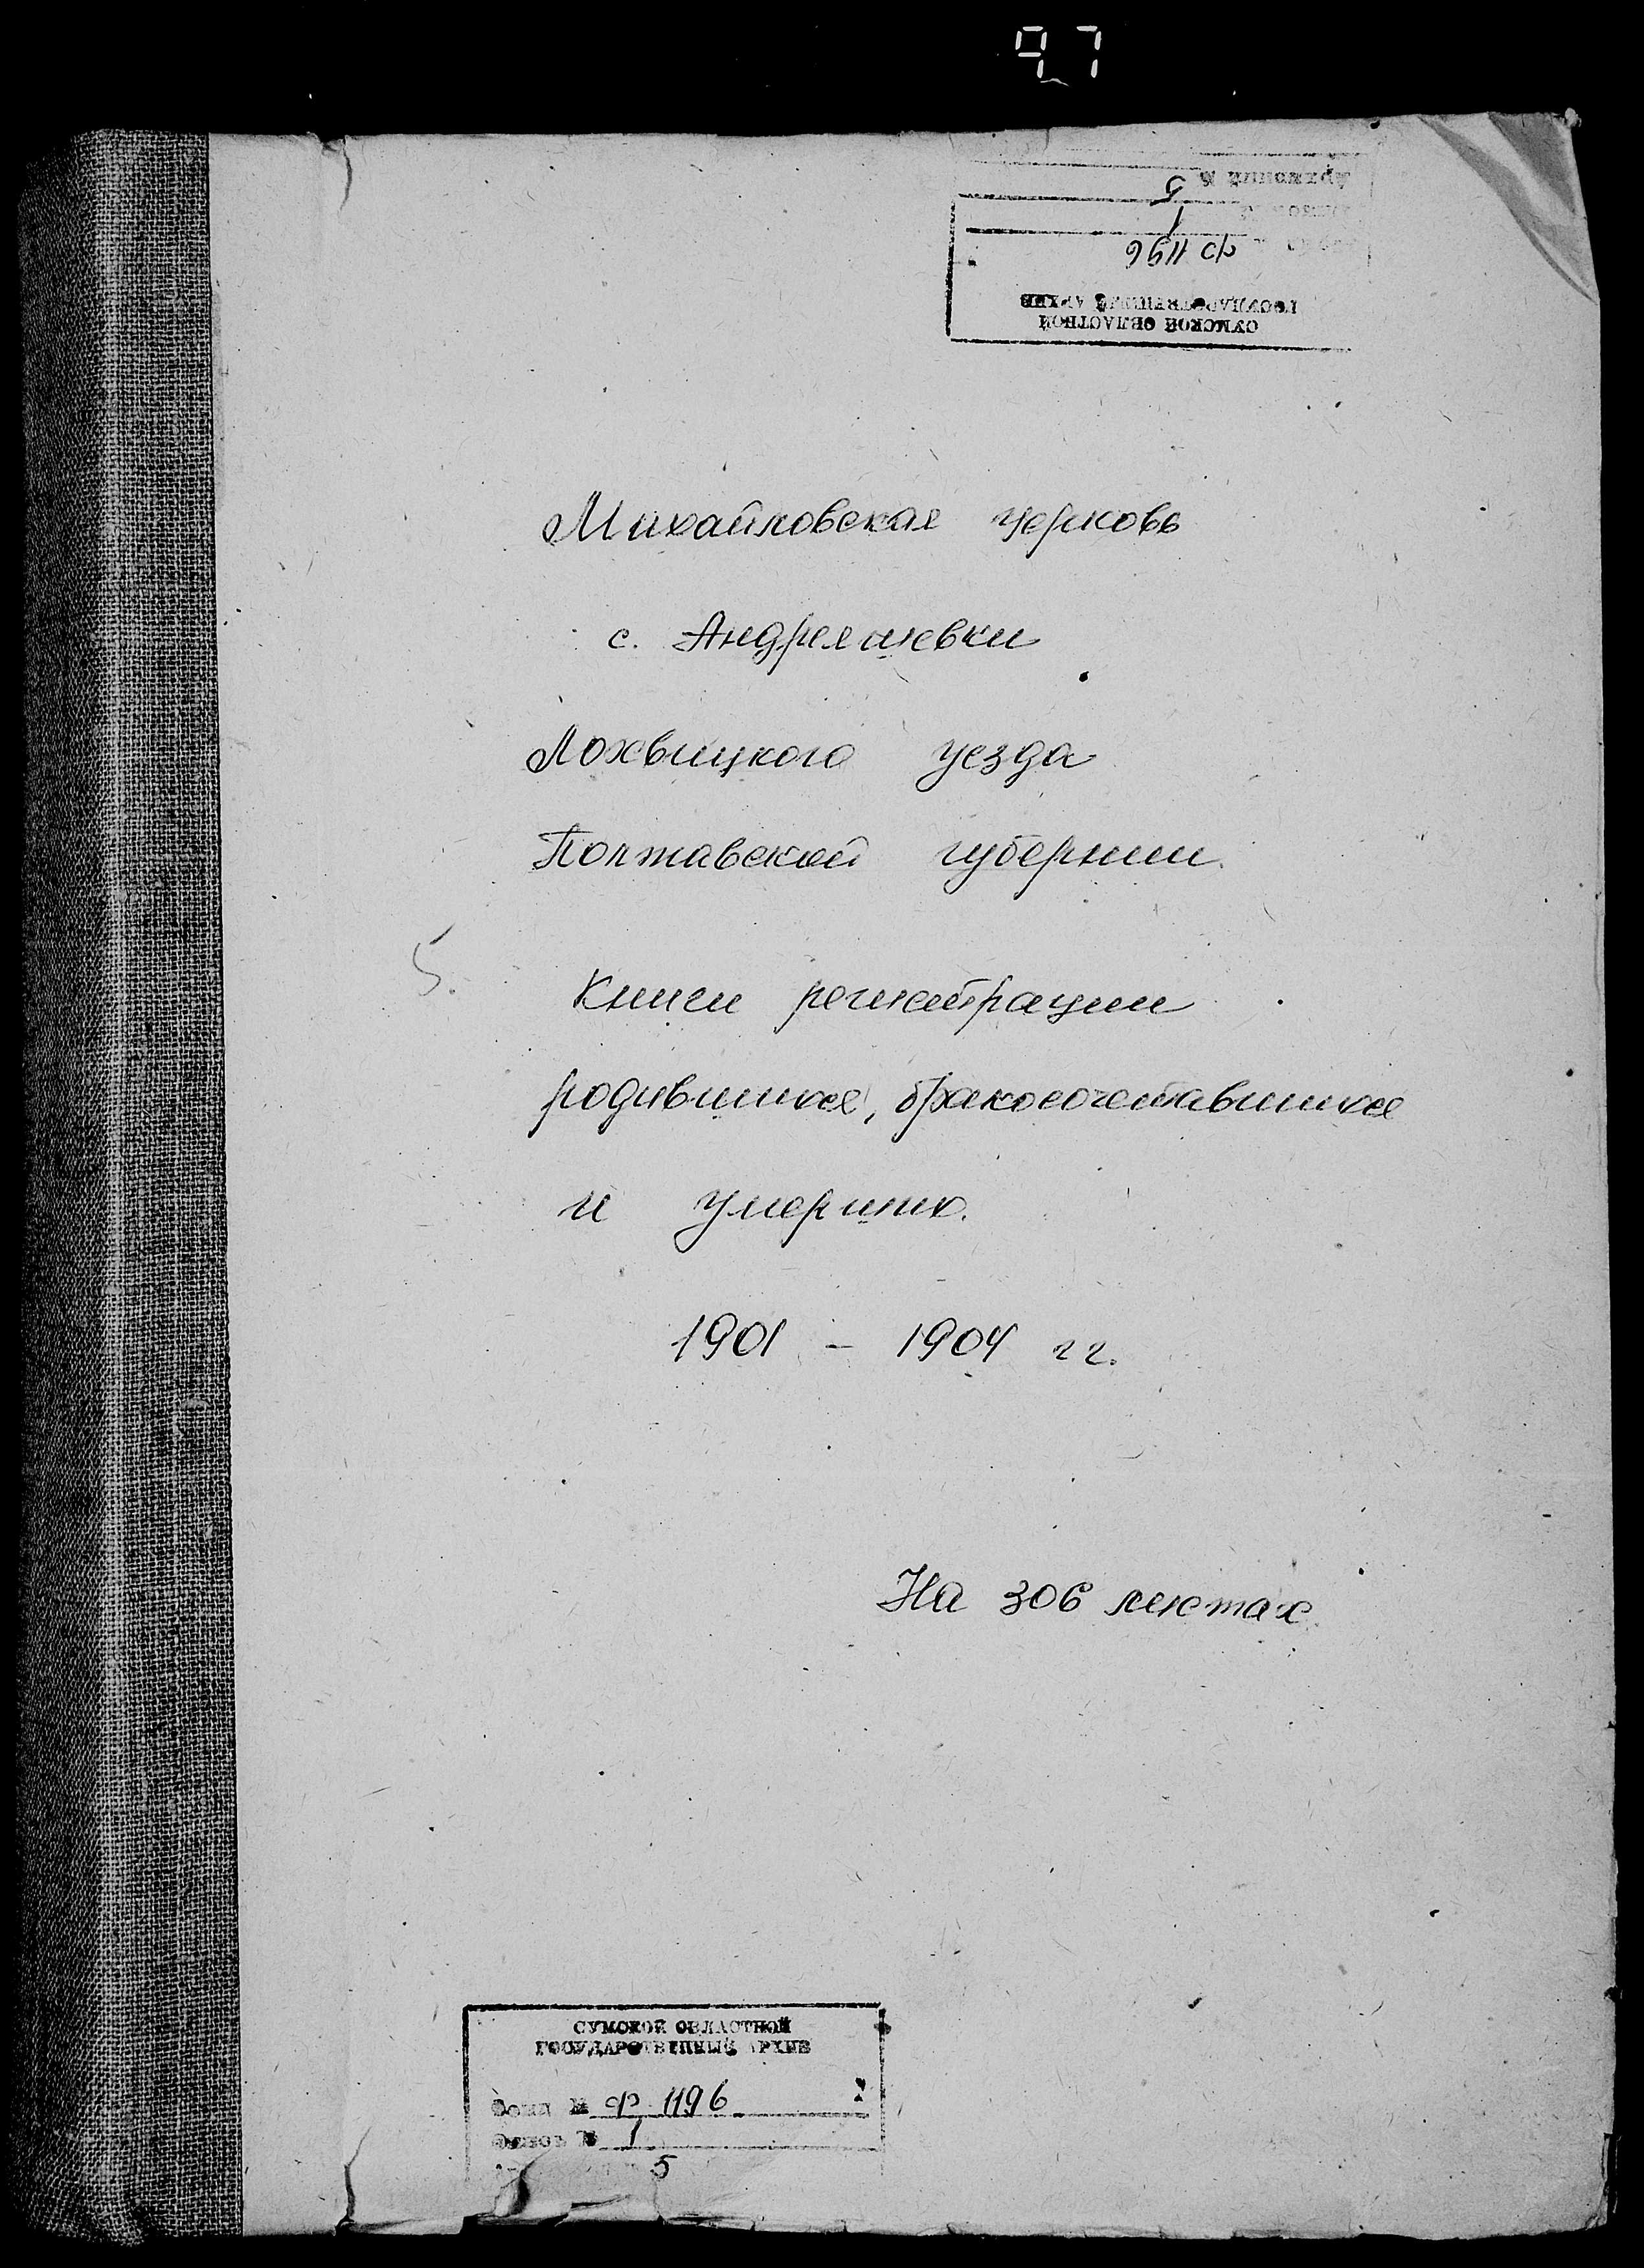 97
Архивный № 5
1
ф 1196
СУМСКОЙ ОБЛАСТНОЙ
ГОСУДАРСТВЕННЫЙ АРХИВ
Михайловская церковь
с. Андреяшевки
Лохвицкого уезда
Полтавской губернии.
5.
Книги регистрации
родившихся, бракосочетавшихся
и умерших.
1901 - 1904 гг.
На 306 листах.
СУМСКОЙ ОБЛАСТНОЙ
ГОСУДАРСТВЕННЫЙ АРХИВ
Фонд № ф. 1196
Опись № 1
5